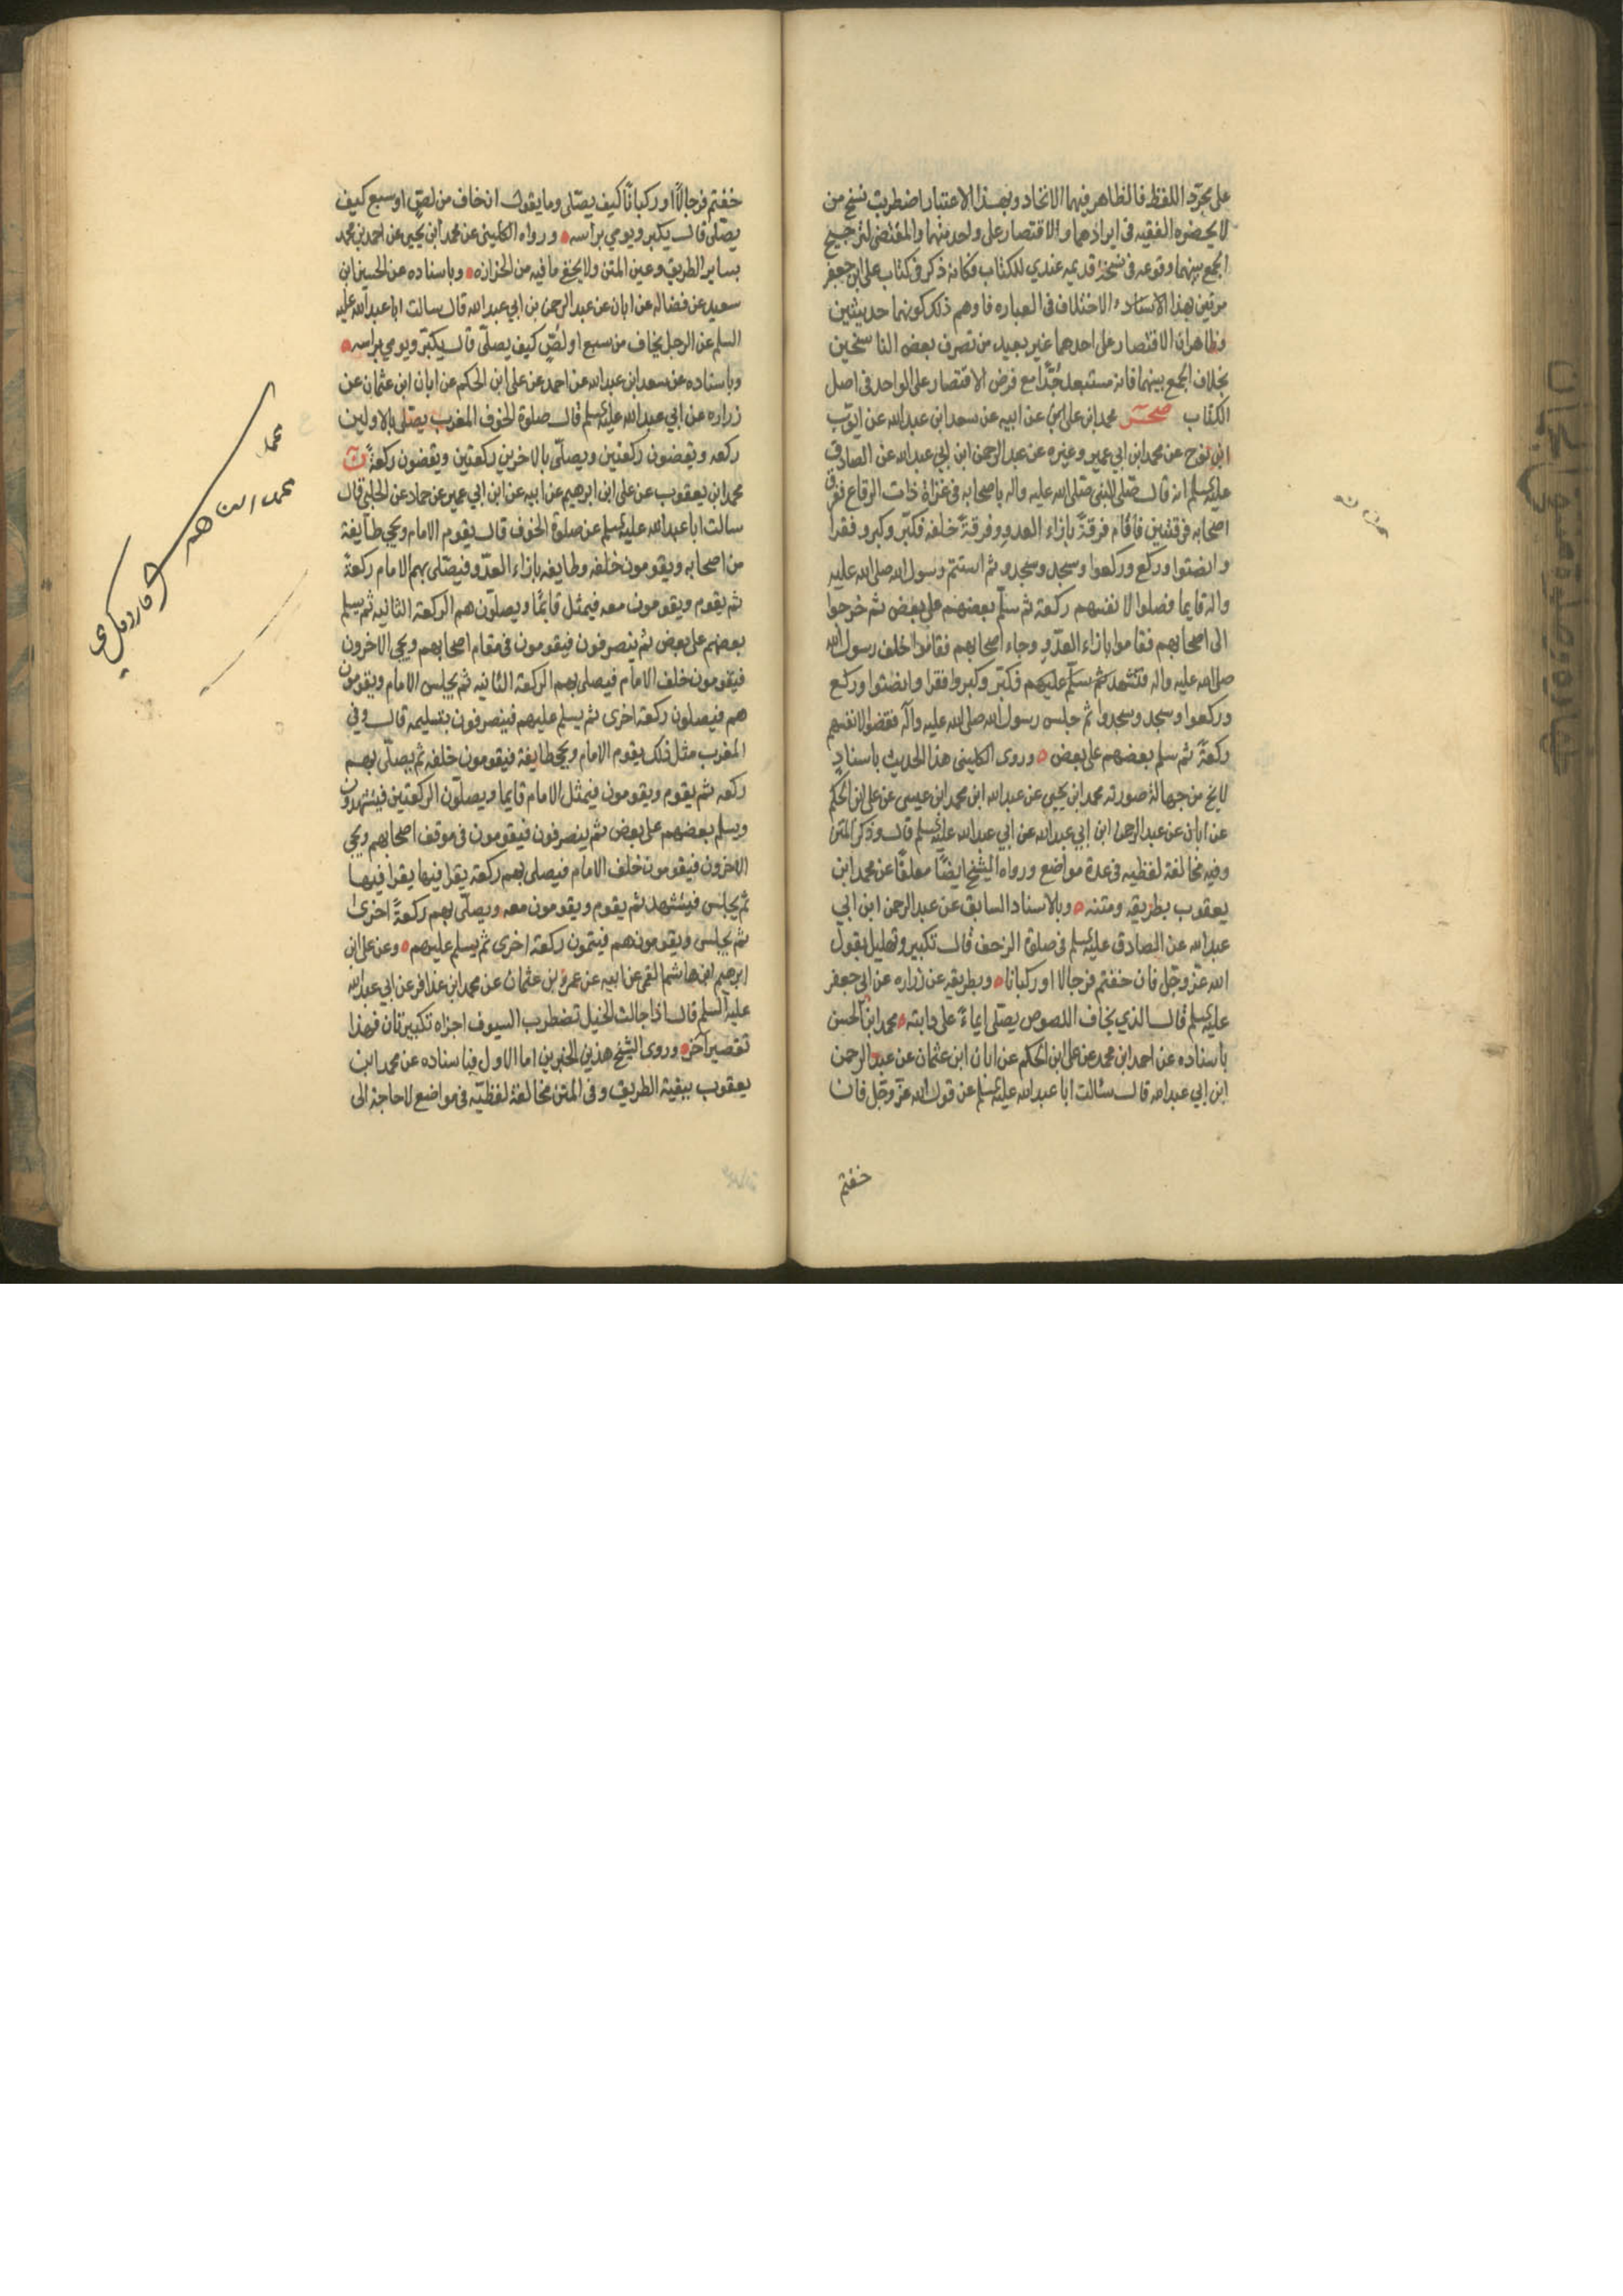 على مجرد اللفظ فالظاهر فيهما الاتخاد وبهذا الاعتبار اضطربت نسخ من
لا يحضره الفقيه في ايرادهما والاقتصار على واحد منهما والمقتضى لترجيح
الجمع بينهما وقوعه في نسخة قديمه عندي للكتاب فكانه ذكر في كتاب على ابن جعفر
مرتين بهذا الاسناد والاختلاف في العباره فاوهم ذلك كونهما حديثين
وظاهر ان الاقتصار على احدهما غير بعيد من تصرف بعض الناسخين
بخلاف الجمع بينهما فانه مستبعد جدا مع فرض الاقتصار على الواحد في اصل
الكتاب صحر محمد ابن على ابن عن ابيه عن سعد ابن عبدالله عن ايوب
ابن نوح عن محمد ابن ابي عمير وغيره عن عبد الرحمن ابن ابي عبدالله عن الصادق
عليه السلم انه قال صلى النبى صلى الله عليه واله باصحابه في غزاة ذات الرقاع ففرق
اصحابه فرقتين فاقام فرقةً بازاء العدو وفرقةً خلفه فكبّر وكبروفقرا
وانصتوا وركع وركعوا وسجد وسجدو ثم استتم رسول الله صلى الله عليه
واله قايما فصلوا لانفسهم ركعة ثم سلّم بعضهم على بعض ثم خرجوا
الى اصحابهم فقاموا بازاء العدّو وجاء اصحابهم فقاموا خلف رسول الله
صلى الله عليه واله فتشهد ثم سلّم عليهم فكبّر وكبروا فقرا وانصتوا وركع
وركعوا وسجد وسجدوا ثم جلس رسول الله صلى الله عليه وآله فقضوا لانفسهم
ركعةً ثم سلم بعضهم على بعض ه وروى الكلينى هذا الحديث باسنادٍ
لا يخ من جهالة صورته محمد ابن يحيى عن عبدالله ابن محمد ابن عيسى عن على ابن الحكم
عن ابان عن عبد الرحمن ابن ابي عبدالله عن ابي عبدالله عليه السلم قال وذكر المتن
وفيه مخالفة لفظيه في عدة مواضع ورواه الشيخ ايضاً معلقاً عن محمد ابن
يعقوب بطريقه ومتنه ه وبالاسناد السابق عن عبد الرحمن ابن ابي
عبدالله عن الصادق عليه السلم في صلوة الزحف قال تكبير وتهليل يقول
الله عزّ وجّل فان خفتم فرجالا او ركبانا ه وبطريقه عن زراره عن ابي جعفر
عليه السلم قال الذي يخاف اللصوص يصلى ايماءً على دابته ه محمد ابن الحسن
باسناده عن احمد ابن محمد عن على ابن الحكم عن ابان ابن عثمان عن عبد الرحمن
ابن ابي عبدالله قال سئالت ابا عبدالله عليه السلم عن قول الله عزّ وجّل فان
خفتم
خفتم فرجالاً او ركباناً كيف يصلى وما يقول ان خاف من لصٍ او سبع كيف
يصلى قال يكبر ويومي براسه ه ورواه الكلينى عن محمد ابن يحيى عن احمد بن محمد
بساير الطريق وعين المتن ولا يخفى ما فيه من الحزازه ه وباسناده عن الحسين ابن
سعيد عن فضاله عن ابان عن عبد الرحمن بن ابي عبدالله قال سالت ابا عبدالله عليه
السلم عن الرجل يخاف من سبع او لصٍّ كيف يصلّى قال يكبّر ويومي براسه ه
وباسناده عن سعد ابن عبدالله عن احمد عن على ابن الحكم عن ابان ابن عثمان عن
زراره عن ابي عبدالله عليه السلم قال صلوة الخوف المغرب يصلى بالاولين
ركعه ويقضون ركعتين ويصلّى بالاخرين ركعتين ويقضون ركعةً ن
محمد ابن يعقوب عن على ابن ابرهيم عن ابيه عن ابن ابي عمير عن حماد عن الحلبى قال
سالت ابا عبدالله عليه السلم عن صلوة الخوف قال يقوم الامام ويجي طايفة
من اصحابه ويقومون خلفه وطايفه بازاء العدّو فيصّلى بهم الامام ركعةً
ثم يقوم ويقومون معه فيمثل قايمًا ويصلّون هم الركعة الثانيه ثم يسلم
بعضهم على بعض ثم ينصرفون فيقومون في مقام اصحابهم ويجي الاخرون
فيقومون خلف الامام فيصلى بهم الركعة الثانيه ثم يجلس الامام ويقومون
هم فيصلون ركعة اخرى ثم يسلم عليهم فينصرفون بتسليمه قال وفي
المغرب مثل ذلك يقوم الامام ويجي طايفة فيقومون خلفه ثم يصلّى بهم
ركعه ثم يقوم ويقومون فيمثل الامام قايما ويصلّون الركعتين فيتشهدون
ويسلم بعضهم على بعض ثم ينصرفون فيقومون في موقف اصحابهم ويجي
الاخرون فيقومون خلف الامام فيصلى بهم ركعة يقرا فيها يقرا فيها
ثم يجلس فيتشهد ثم يقوم ويقومون معه ويصلّى بهم ركعةً اخرى
ثم يجلس ويقومون هم فيتمون ركعة اخرى ثم يسلم عليهم ه وعن على ابن
ابرهيم ابن هاشم القمى عن ابيه عن عمرو بن عثمان عن محمد ابن عذافر عن ابي عبدالله
عليه السلم قال اذا جالت الخيل تضطرب السيوف اجزاه تكبيرتان فهذا
تقصير آخر ه وروى الشيخ هذين الخبرين اما الاول فباسناده عن محمد ابن
يعقوب ببقية الطريق وفى المتن مخالفة لفظيّه في مواضع لا حاجة الى
محمد